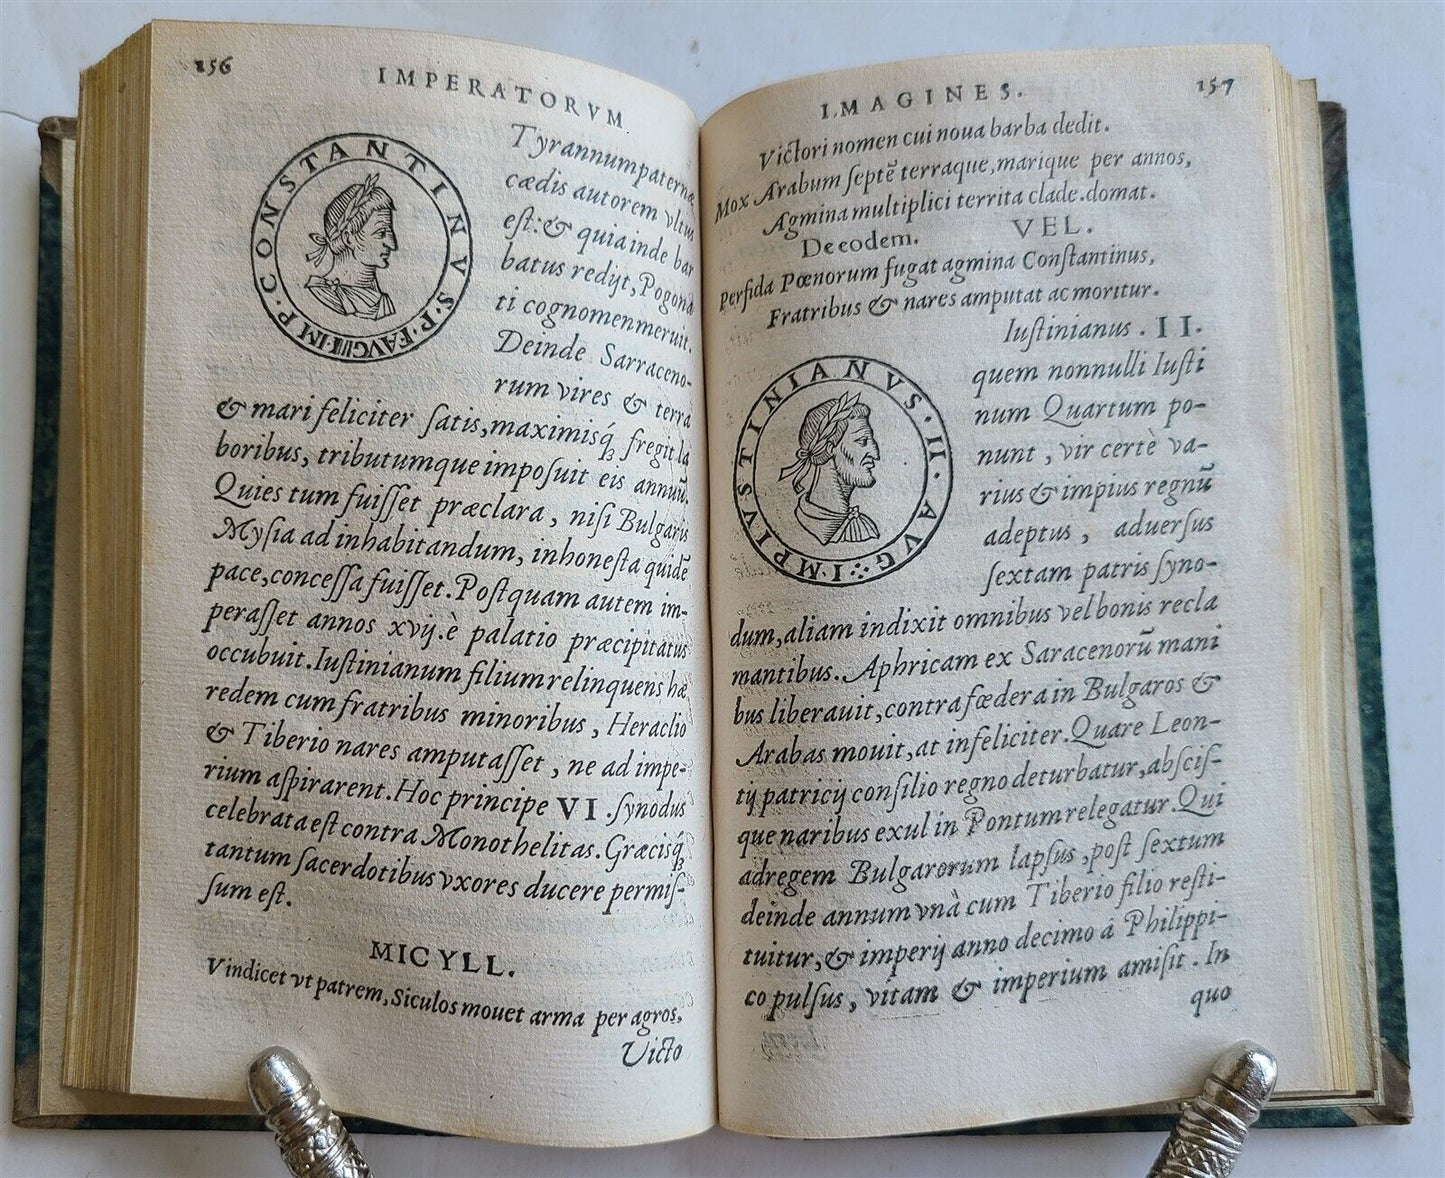 156
IMPERATORVM
CONSTANTINVS·P·F·AVG·IMP·
Tyrannum paternæ
cædis autorem vltus
est: & quia inde bar
batus redijt, Pogona
ti cognomen meruit.
Deinde Sarraceno-
rum vires & terra
& mari feliciter satis, maximisq́ꝫ fregit la
boribus, tributumque imposuit eis annuū.
Quies tum fuisset præclara, nisi Bulgaris
Mysia ad inhabitandum, inhonesta quidē
pace, concessa fuisset. Postquam autem im-
perasset annos xvij. è palatio præcipitatus
occubuit. Iustinianum filium relinquens hæ
redem cum fratribus minoribus, Heraclio
& Tiberio nares amputasset, ne ad impe-
rium aspirarent. Hoc principe VI. synodus
celebrata est contra Monothelitas. Græcisq́ꝫ
tantum sacerdotibus vxores ducere permis-
sum est.
MICYLL.
Vindicet vt patrem, Siculos mouet arma per agros,
Victo
IMAGINES.
157
Victori nomen cui noua barba dedit.
Mox Arabum septē terraque, marique per annos,
Agmina multiplici territa clade domat.
De eodem. VEL.
Perfida Pœnorum fugat agmina Constantinus,
Fratribus & nares amputat ac moritur.
IVSTINIANVS·II·AVG·IMP
Iustinianus. II.
quem nonnulli Iusti
num Quartum po-
nunt, vir certè va-
rius & impius regnū
adeptus, aduersus
sextam patris syno-
dum, aliam indixit omnibus vel bonis recla
mantibus. Aphricam ex Saracenorū mani
bus liberauit, contra fœdera in Bulgaros &
Arabas mouit, at infeliciter. Quare Leon-
tij patricij consilio regno deturbatur, abscis-
que naribus exul in Pontum relegatur. Qui
ad regem Bulgarorum lapsus, post sextum
deinde annum vnà cum Tiberio filio resti-
tuitur, & imperij anno decimo á Philippi-
co pulsus, vitam & imperium amisit. In
quo